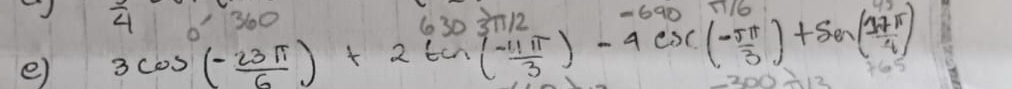 4
0 360 630 3π/2 -690 π/6
e) 3 cos (-23π/6) + 2 tan (-11π/3) - 4 csc (-5π/3) + Sen (17π/4)
765
-300